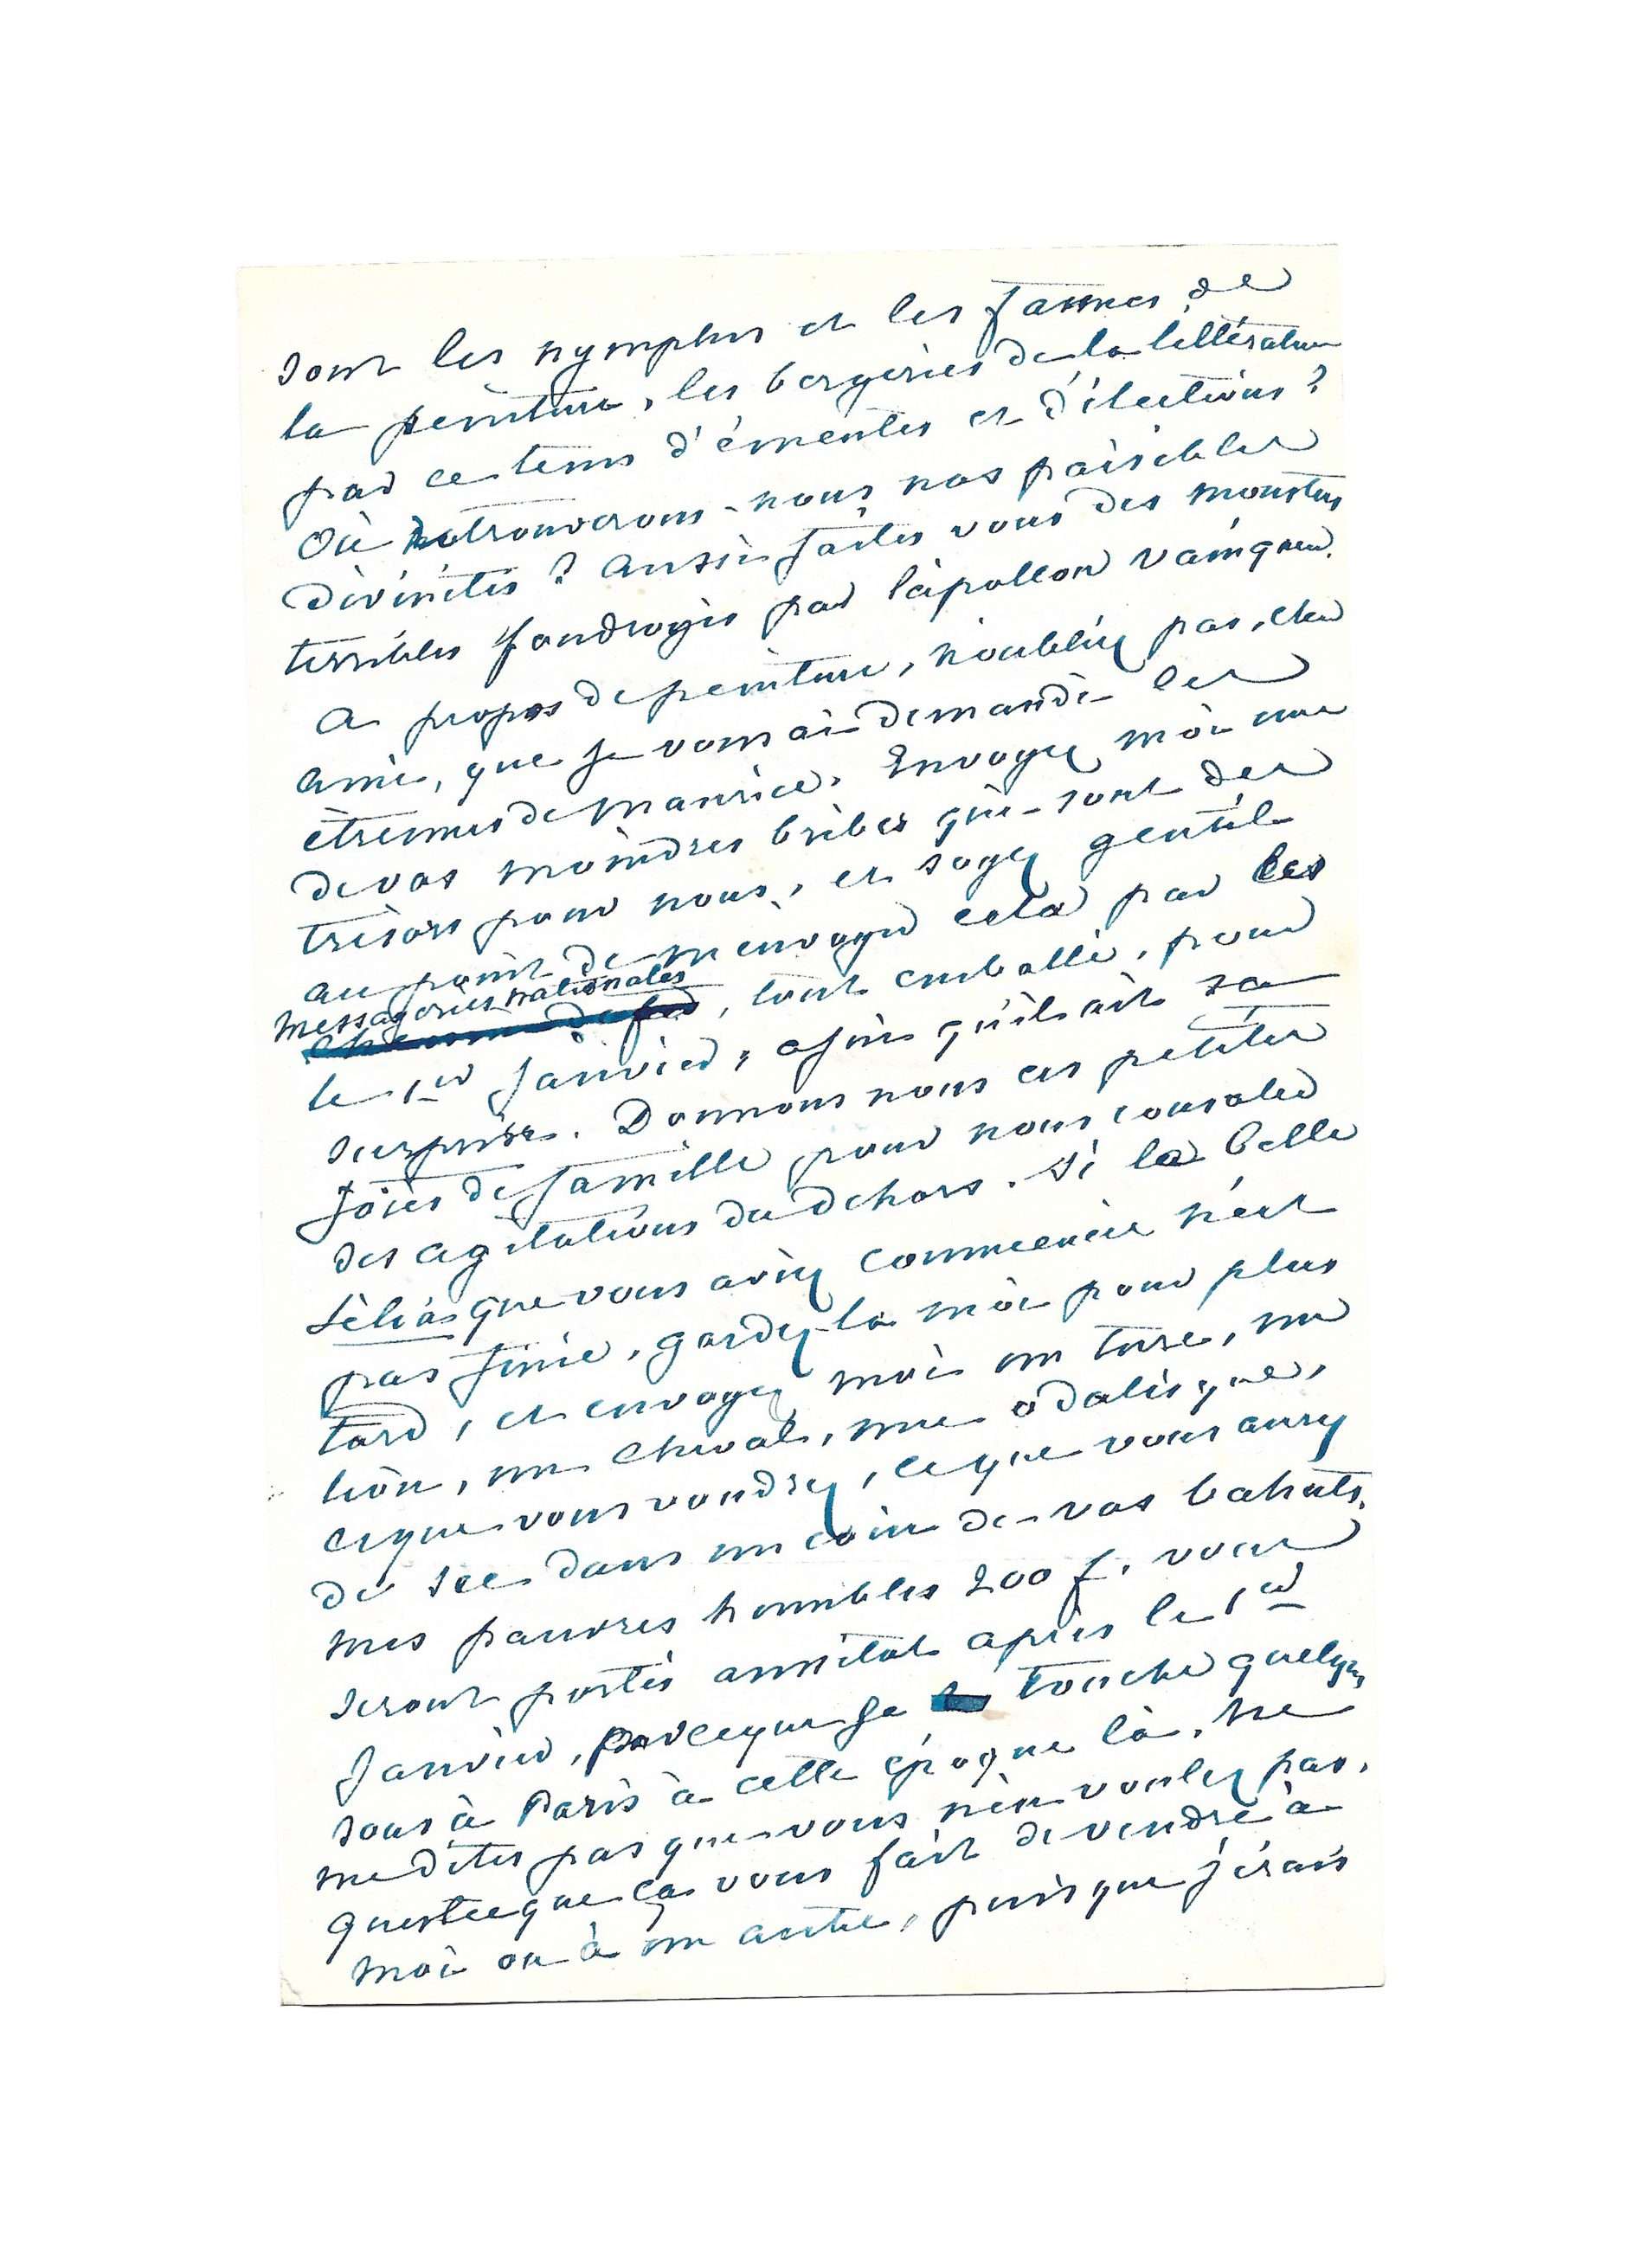 sont les nymphes et les faunes de
la peinture, les bergeries de la littérature
par ce tems d'émeutes et d'élections?
Où retrouverons-nous nos paisibles
divinités? Aussi faites vous des monstres
terribles foudroyés par l'apollon vainqueur.
a propos de peinture, n'oubliez pas, cher
ami, que je vous ai demandé les
étrennes de Maurice. Envoyez moi une
de vos moindres bribes qui sont des
trésors pour nous, et soyez gentil
au point de m'envoyer cela par les
Messageries nationales
chemin de fer, tout emballé, pour
le 1er janvier, afin qu'il ait sa
surprise. Donnons nous ces petites
joies de famille pour nous consoler
des agitations du dehors. Si la belle
Lélia que vous aviez commencée n'est
pas finie, gardez-la moi pour plus
tard, et envoyez moi un turc, un
lion, un cheval, une odalisque,
ce que vous voudrez, ce que vous aurez
de sec dans un coin de vos bahuts.
mes pauvres humbles 200 f. vous
seront portés aussitot après le 1er
Janvier, parceque je touche quelques
sous à Paris à cette époque là. Ne
me dites pas que vous n'en voulez pas.
qu'estceque ça vous fait de vendre à
moi ou à un autre, puisque j'irais